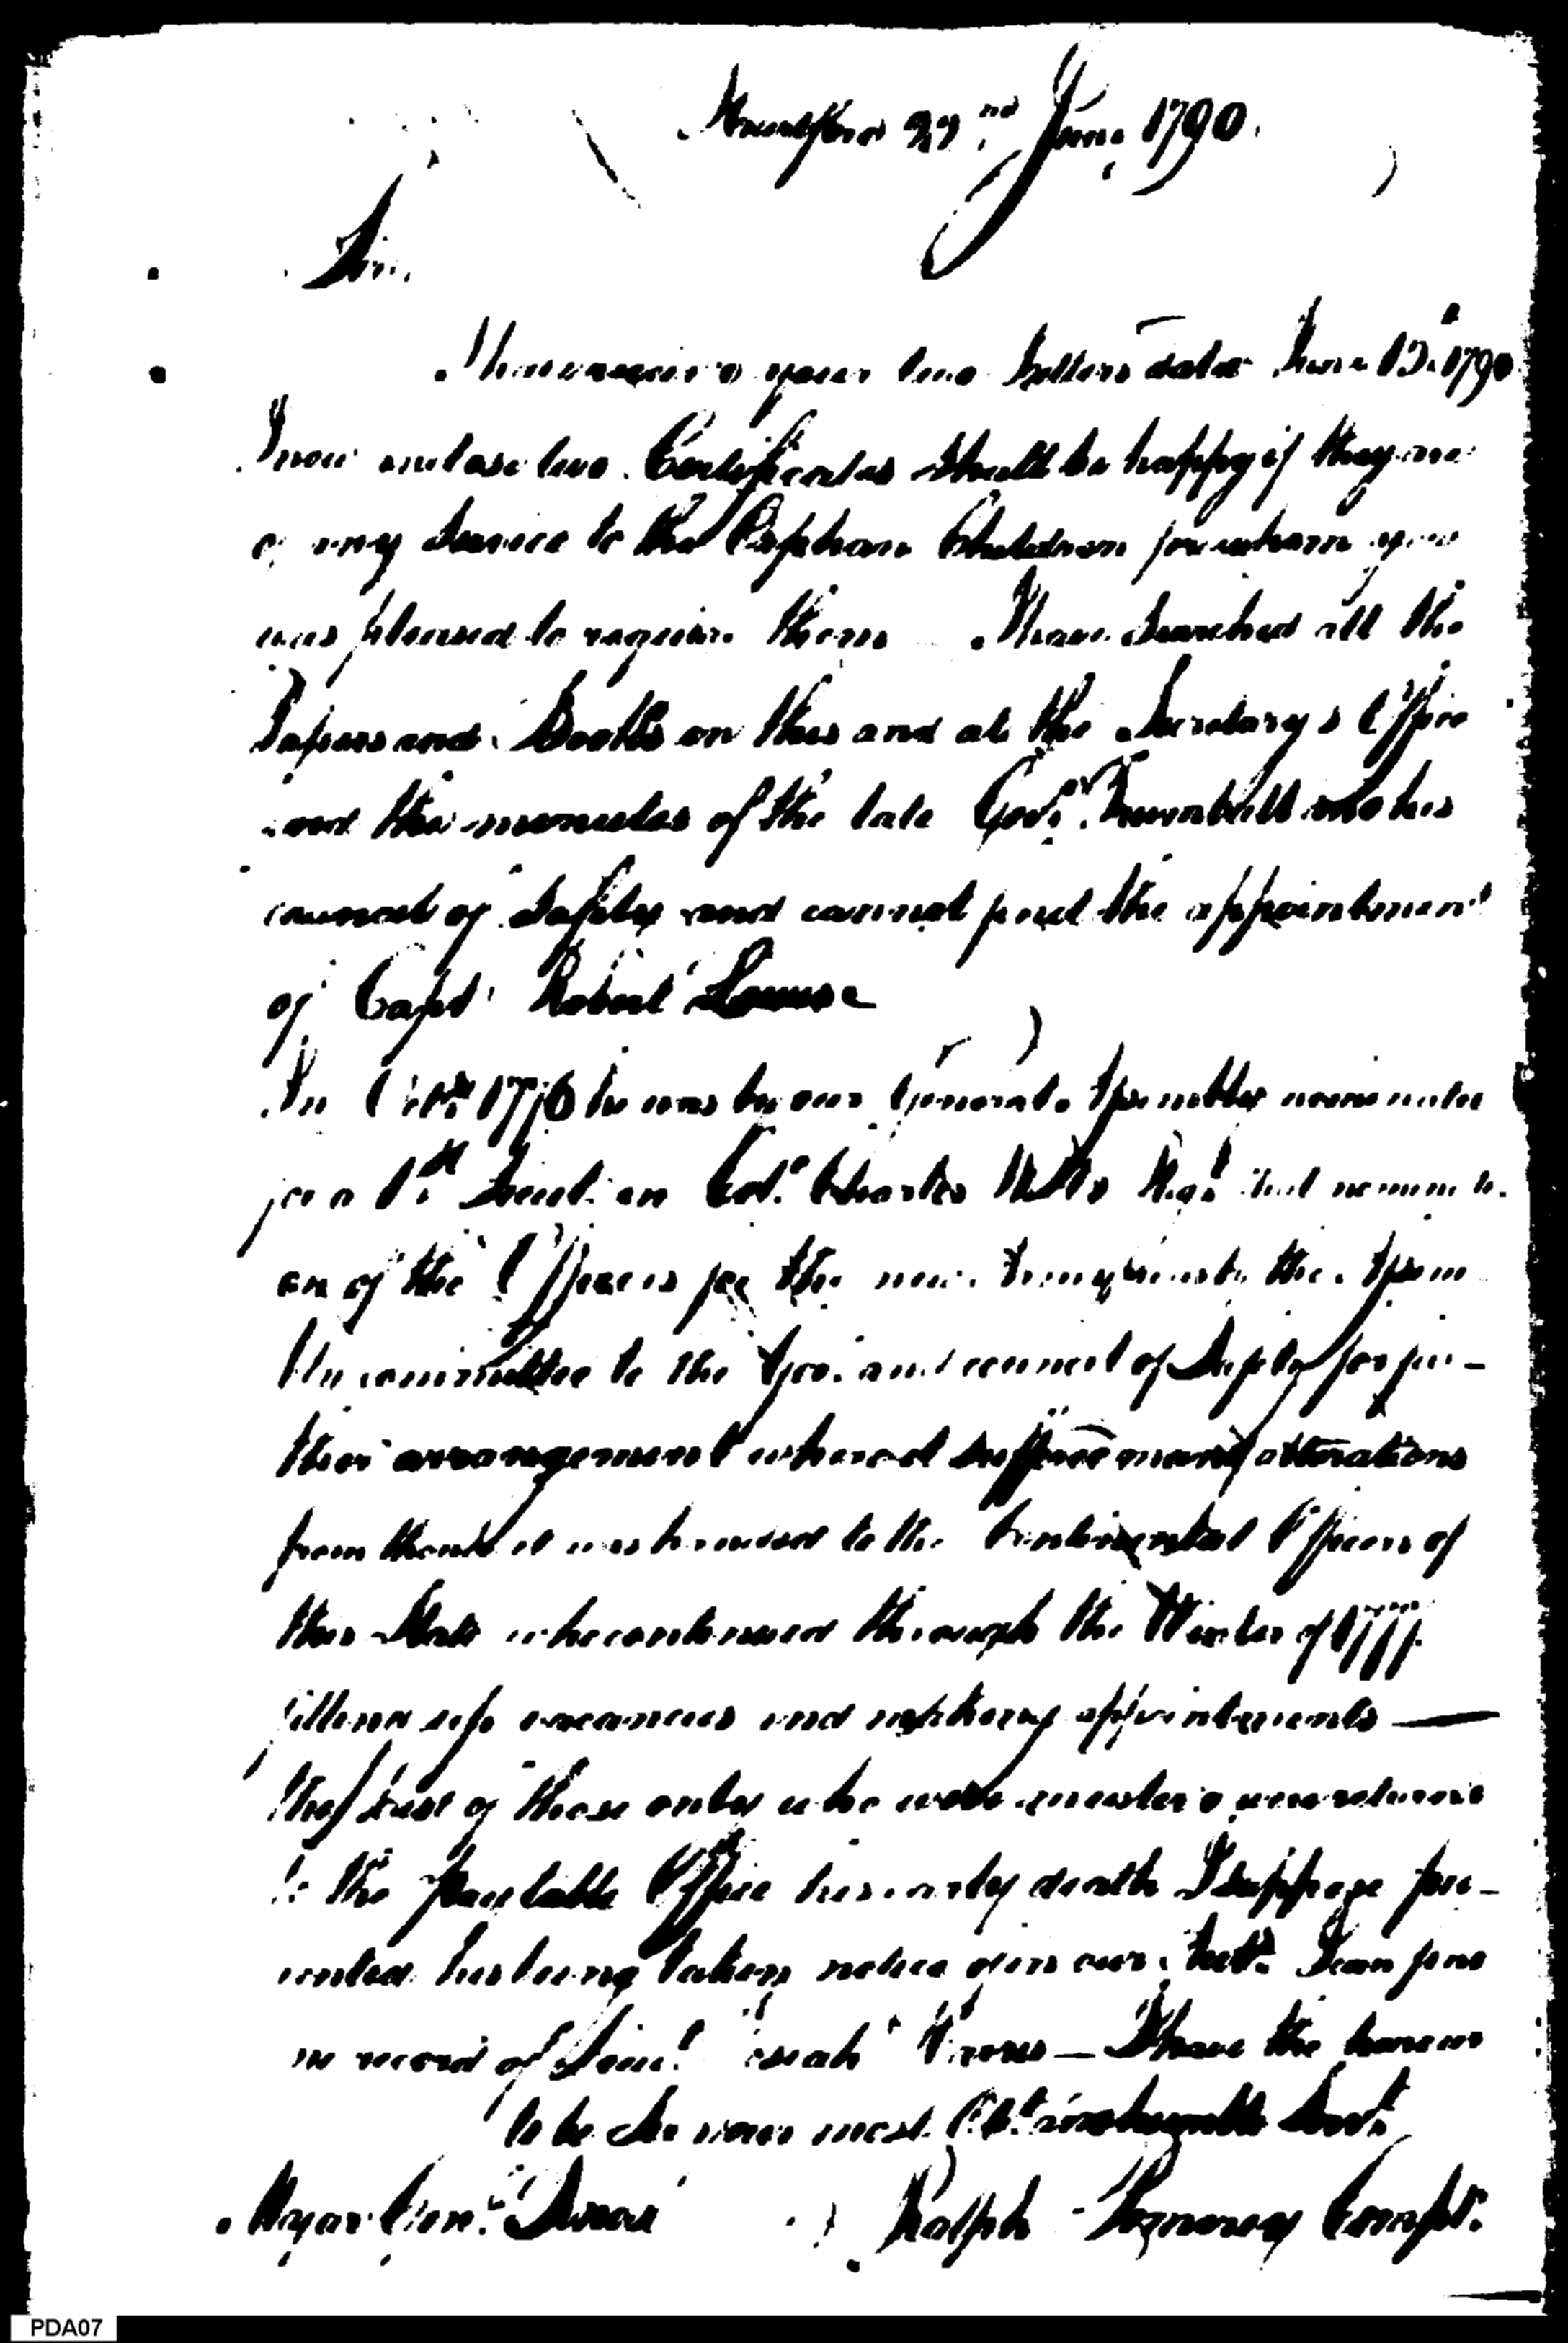 Hartford 22nd June 1790.
Sir,
I have received your two Letters dated June 15th 1790
I now enclose two Certificates shall be happy if they are
of any Service to the Orphan Children for whom you
was pleased to require them I have Searched all the
Papers and Books in this and at the Secretary's Office
and the minutes of the late Govr. Trumbull and his
council of Safety and cannot find the appointment
of Capt Robert
In Octr. 1776 he was by our General Assembly nominated
for a 1st Lieut. in Col. Charles Webbs Regt. that
on of the Officers for the new Army was by the Assem
bly committed to the Gov. and council of Safety for fur-
ther arrangement where it suffered many alterations
from thence it was handed to the Continental Officers of
this State who continued through the Winter of 1777
filling up vacancies and making appointments —
the List of those only who were mustered were returned
to the Paytable Office his early death I suppose pre-
vented his being taken notice of in our I can find
no record of Lieut. — I have the honour
to be Sir your most Obt. and humble Servt.
Major Genl. Ralph Pomeroy Compt.
PDA07